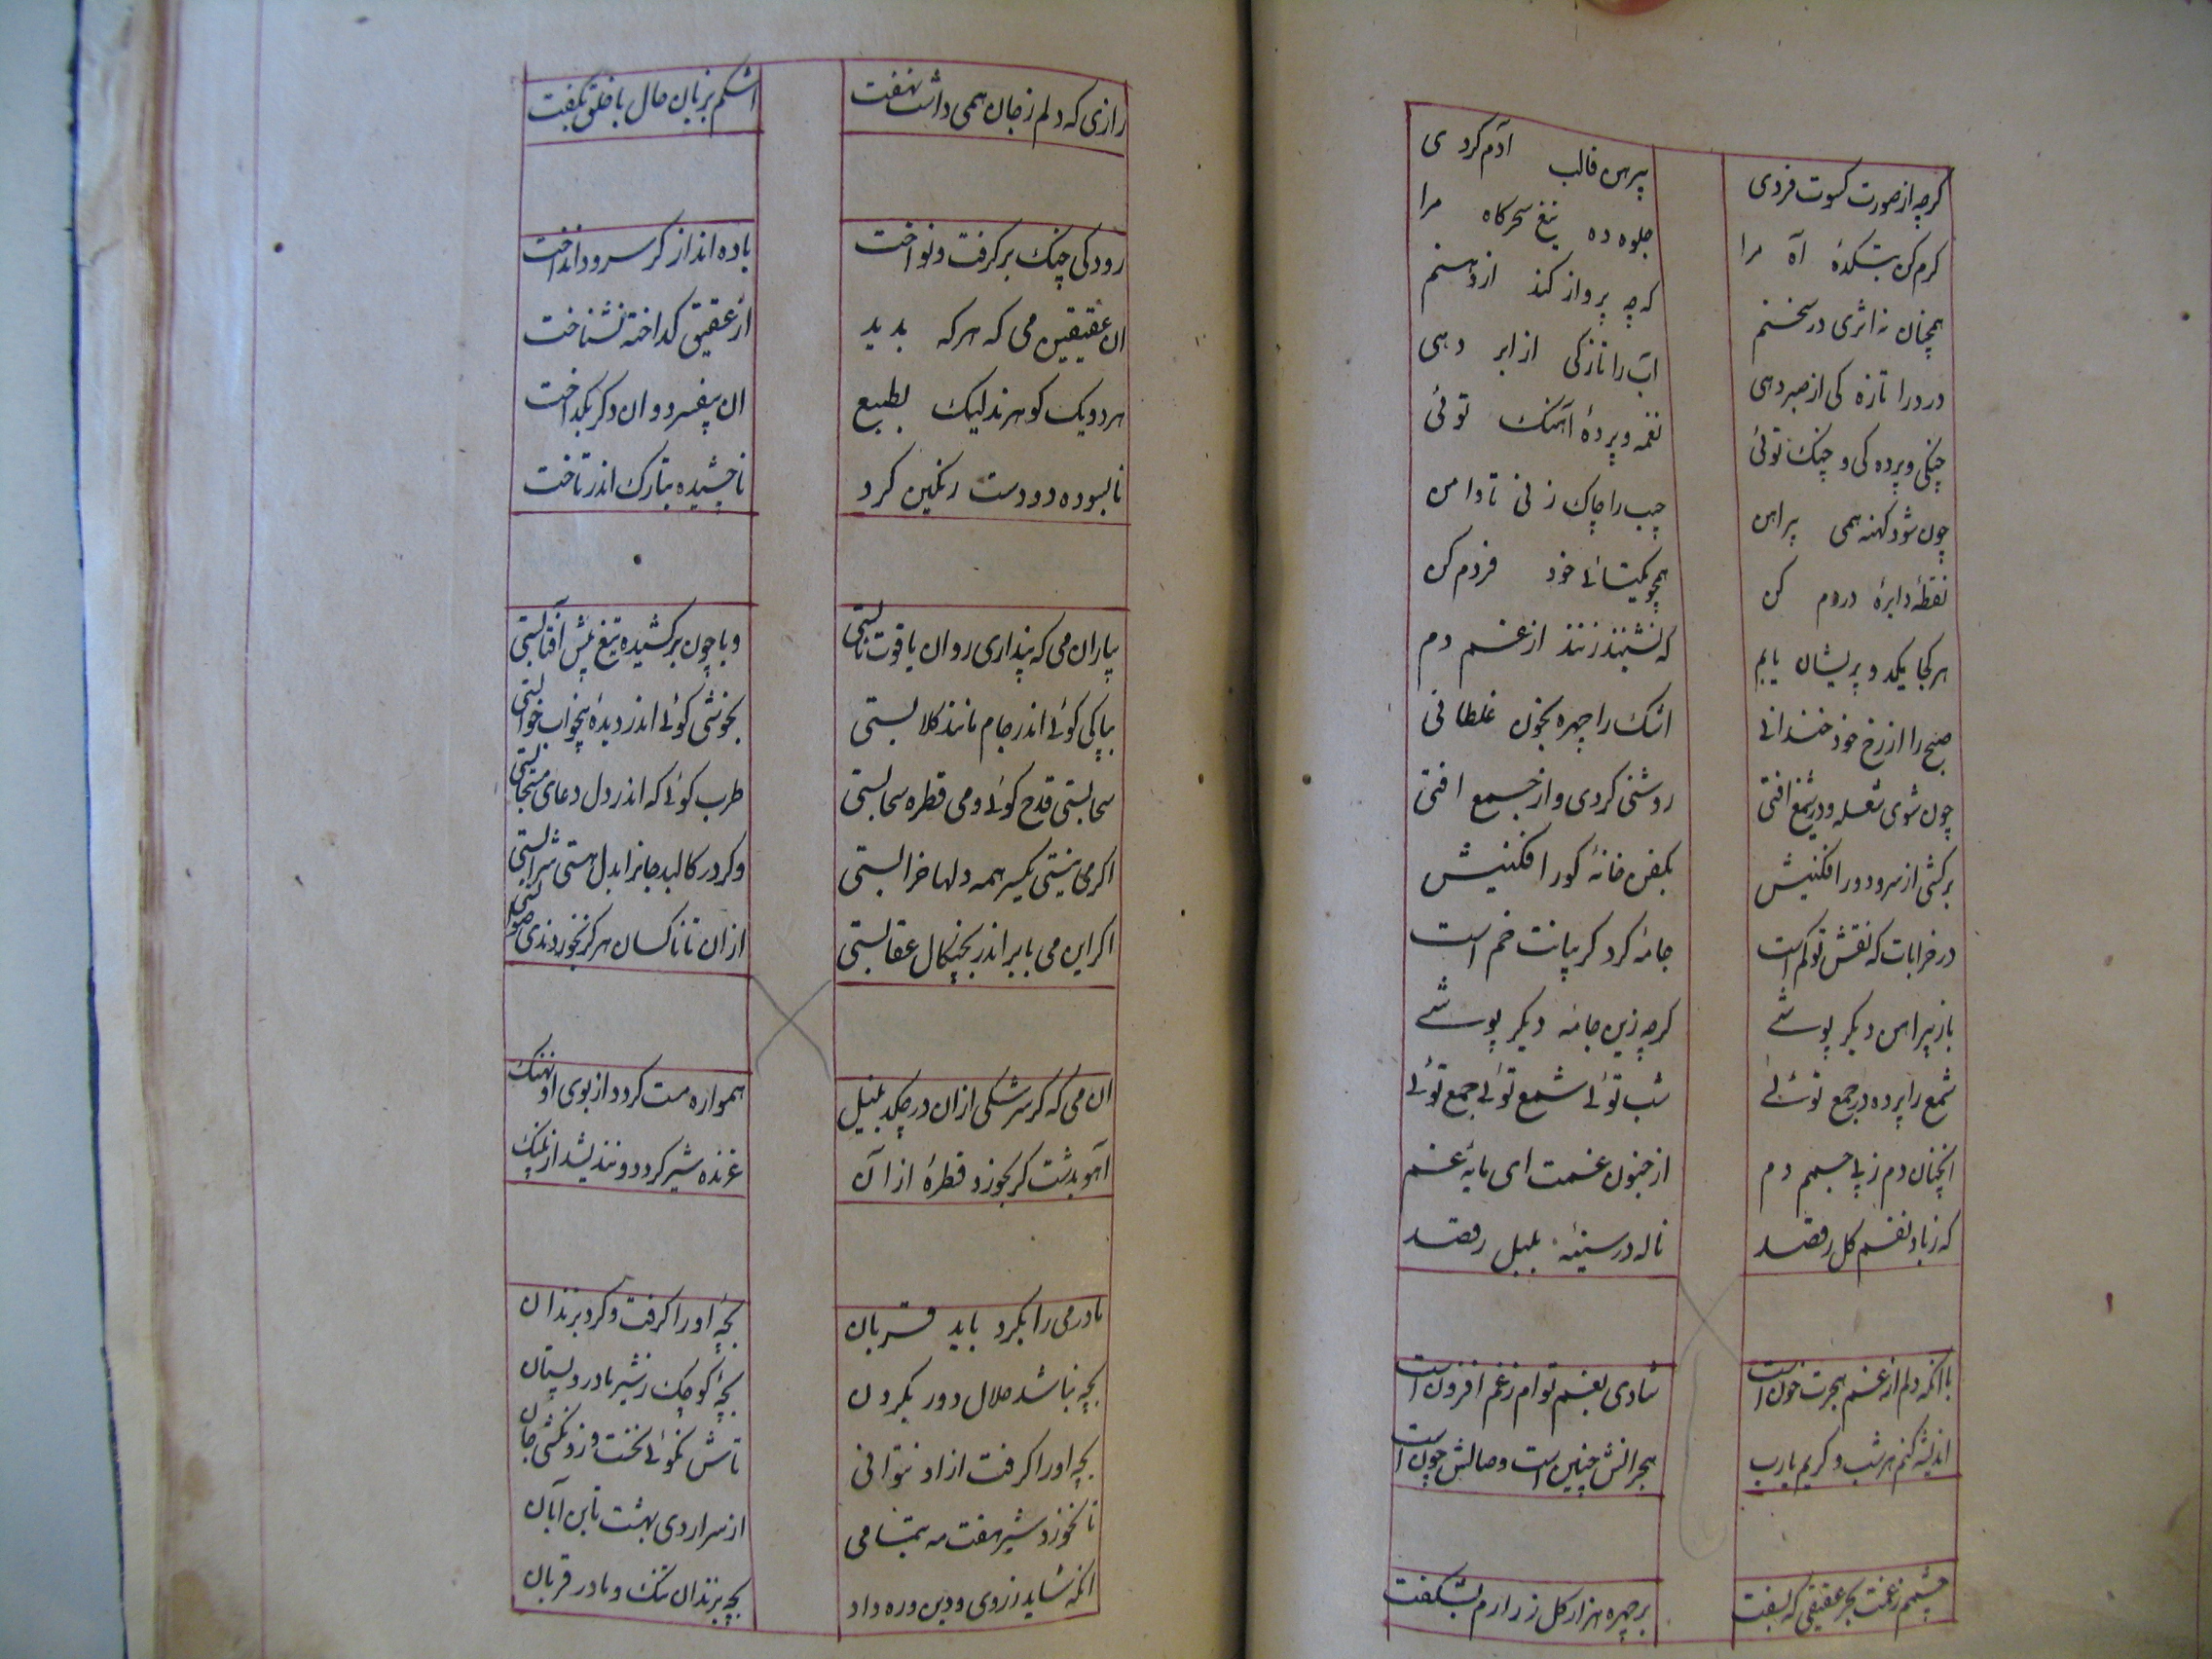 کرچه از صورت کسوت فردی پیرهن قالب آدم کردی
کرم کن بتکدهٔ آه مرا جلوه ده تیغ سحرکاه مرا
همچنان نه اثری در سخنم که چه پرواز کند از دهنم
درد را تازه کی از صبر دهی آب را نازکی از ابر دهی
چنکی و پرده کی و چنک توئی نغمه و پردهٔ آهنک توئی
چون شود کهنه همی پراهن جیب را چاک زنی تا دامن
نقطهٔ دایرهٔ دردم کن همچو یکتائے خود فردم کن
هر کجا یکد و پریشان یابم که نشینند زنند از غم دم
صبح را از رخ خود خندانے اشک را چهره بخون غلطانی
چون شوی شعله و در شمع افتی روشنی کردی و از جمع افتی
برکشی از سر و دور افکنیش بکفن خانهٔ کور افکنیش
در خرابات که نقش تو کم است جامه کرد کریبانت خم است
باز پیراهن دیکر پوشے کرچه زین جامه دیکر پوشے
شمع را پرده در جمع توئے شب توئے شمع توئے جمع توئے
انچنان دم ز پے جسمم دم از جنون غمت ای مایهٔ غم
که ز باد نفسم کل رقصد ناله در سینهٔ بلبل رقصد
با انکه دلم از غم هجرت خونست شادی بغم توام ز غم افزونست
اندیشه کنم هر شب و کریم یا رب هجرانش چنین است وصالش چونست
چشمم ز غمت بهر عقیقی که بسفت بر چهره هزار کل ز رازم بشکفت
رازی که دلم ز جان همی داشت نهفت اشکم بزبان حال با خلق بکفت
رودکی چنک برکرفت و نواخت باده انداز کو سرود انداخت
ان عقیقین می که هر که بدید از عقیق کداخته نشناخت
هر دو یک کوهرند لیک بطبع ان بیفسرد و ان دکر بکداخت
نابسوده دو دست رنکین کرد ناچشیده بتارک اندر تاخت
بیار ان می که پنداری روان یاقوت نابستی و یا چون برکشیده تیغ پیش آفتابستی
بپاکی کوئے اندر جام مانند کلابستی بخوشی کوئے اندر دیدهٔ بیخواب خوابستی
سحابستی قدح کوئے و می قطره سحابستی طرب کوئے که اندر دل دعای مستجابستی
اکر می نیستی یکسر همه دلها خرابستی وکر در کالبد جانرا بدل هستی شرابستی
اکر این می بابر اندر بچنکال عقابستی از ان تا ناکسان هرکز نخوردندی صوابستی
ان می که کر سرشکی ازان در چکد بنیل همواره مست کردد از بوی او نهنک
آهو بدشت کر بخورد قطرهٔ از آن غرنده شیر کردد و نندیشد از پلنک
مادر می را بکرد باید قربان بچهٔ اورا کرفت و کرد بزندان
بچه نباشد حلال دور بکردن بچهٔ کوچک ز شیر مادر و پستان
بچه اورا کرفت ازاو نتوانی تاش نکوئے نخست وزو نکشی جان
تا نخورد شیر هفت مه بتمامی از سر اردی بهشت تا بن آبان
انکه شاید ز روی و دین و ره داد بچه بزندان تنک و مادر قربان